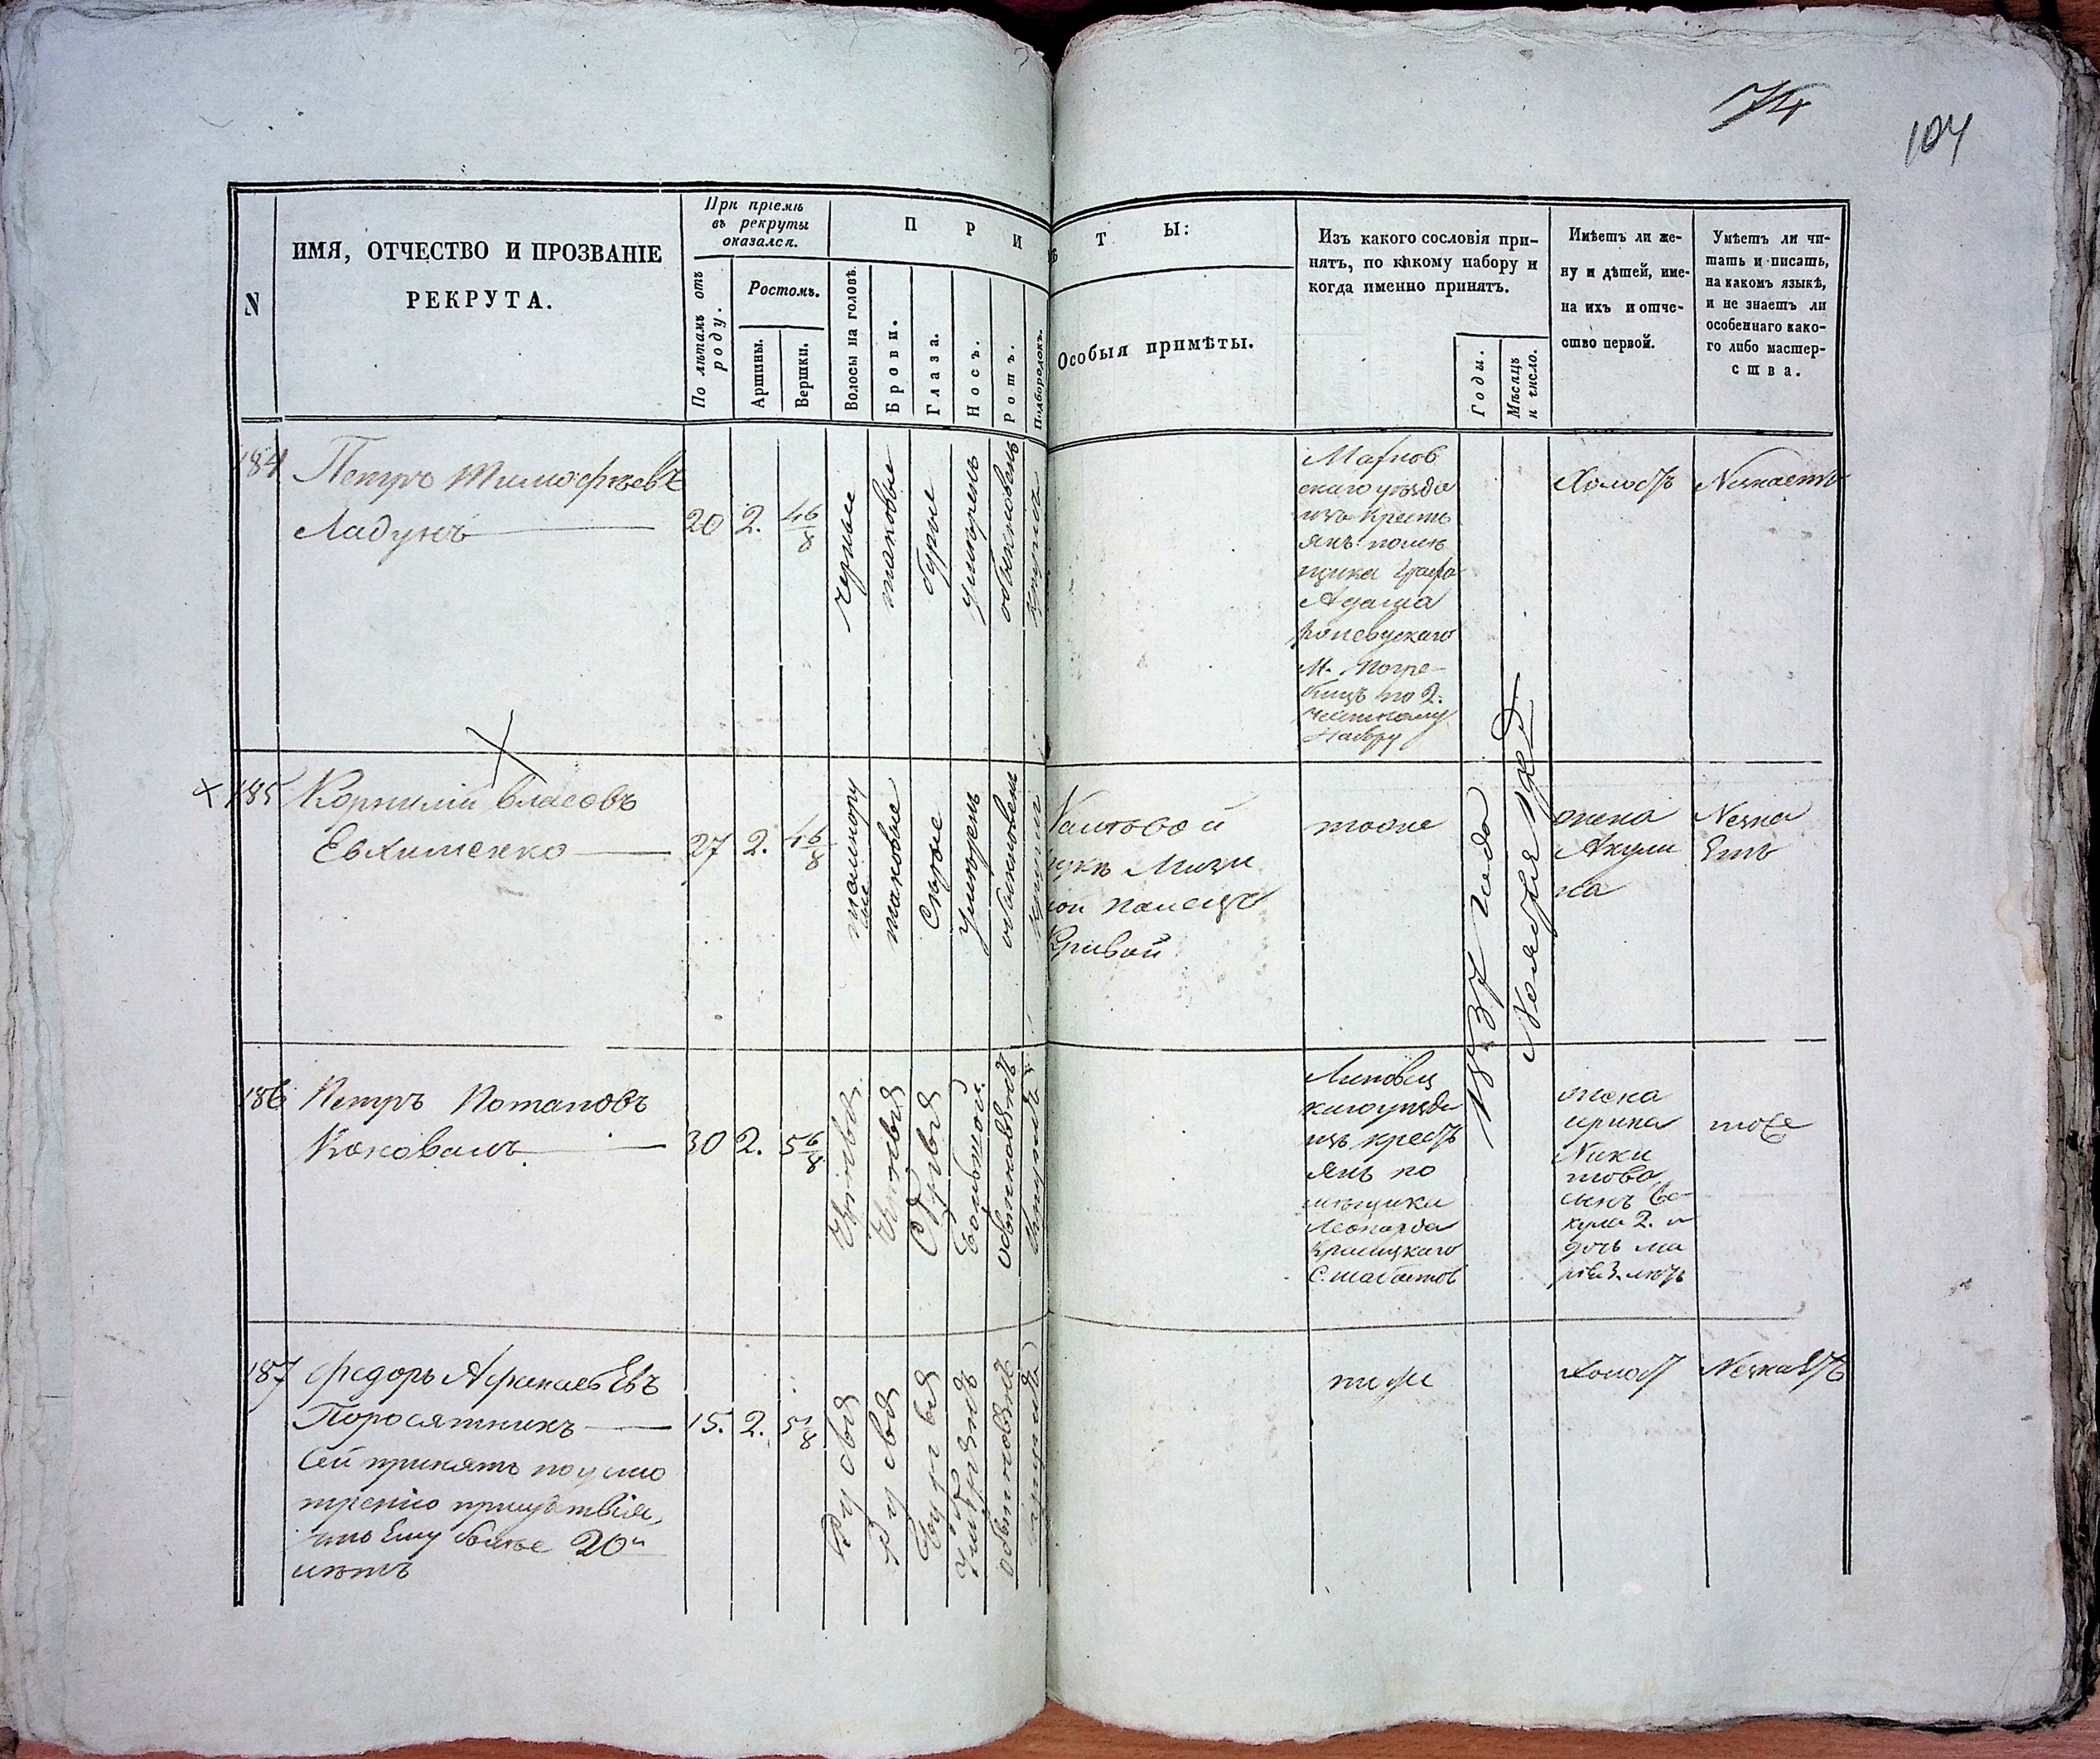 74
104
N
ИМЯ, ОТЧЕСТВО И ПРОЗВАНІЕ
РЕКРУТА.
При пріемѣ
въ рекруты
оказался.
По лѣтамъ отъ
роду.
Ростомъ.
Аршины.
Вершки.
П Р И
Т Ы:
Волосы на головѣ.
Брови.
Глаза.
Носъ.
Ротъ.
Подбородокъ.
Особыя примѣты.
Изъ какого сословія при-
нятъ, по какому набору и
когда именно принятъ.
Годы.
Мѣсяцъ
и число.
Имѣетъ ли же-
ну и дѣтей, име-
на ихъ и отче-
ство первой.
Умѣетъ ли чи-
тать и писать,
на какомъ языкѣ,
и не знаетъ ли
особеннаго како-
го либо мастер-
ства.
184
Петръ Тимофѣевъ
Ладунъ
20
2.
4 6/8
черные
таковые
бурые
умѣренъ
обыкновенъ
кругла
скаго уѣзда
изъ кресть
янъ помѣ
щика Графа
Адама
Ржевускаго
М. Погре-
бищъ по 2.
частному
набору
Холостъ
Незнаетъ
185
Корнилій Власовъ
Евхименко
27
2.
4 6/8
таковые
Сѣрые
Умѣренъ
обыкновенъ
кругла
палецъ
Кривой
тоже
1837 года
Ноября
жена
Акули
на
Незна
Етъ
186
Петръ Потаповъ
Коновалъ
30
2.
5 6/8
обыкновенъ
Липовец
каго уѣзда
изъ крестъ
янъ по
мѣщика
Леонарда
С. Шабастов
жена
Ирина
Ники
това
сынъ Ва-
кула 2. и
дочь Ма
рья 3. лѣтъ
тоже
187
Федоръ Афанасьевъ
Поросятникъ
Сей принятъ по усмо
трению присудствія,
что Ему более 20и
лѣтъ
15.
2.
5 1/8
Русыя
Русыя
Умѣренъ
обыкновенъ
тоже
Холостъ
НезнаЕтъ